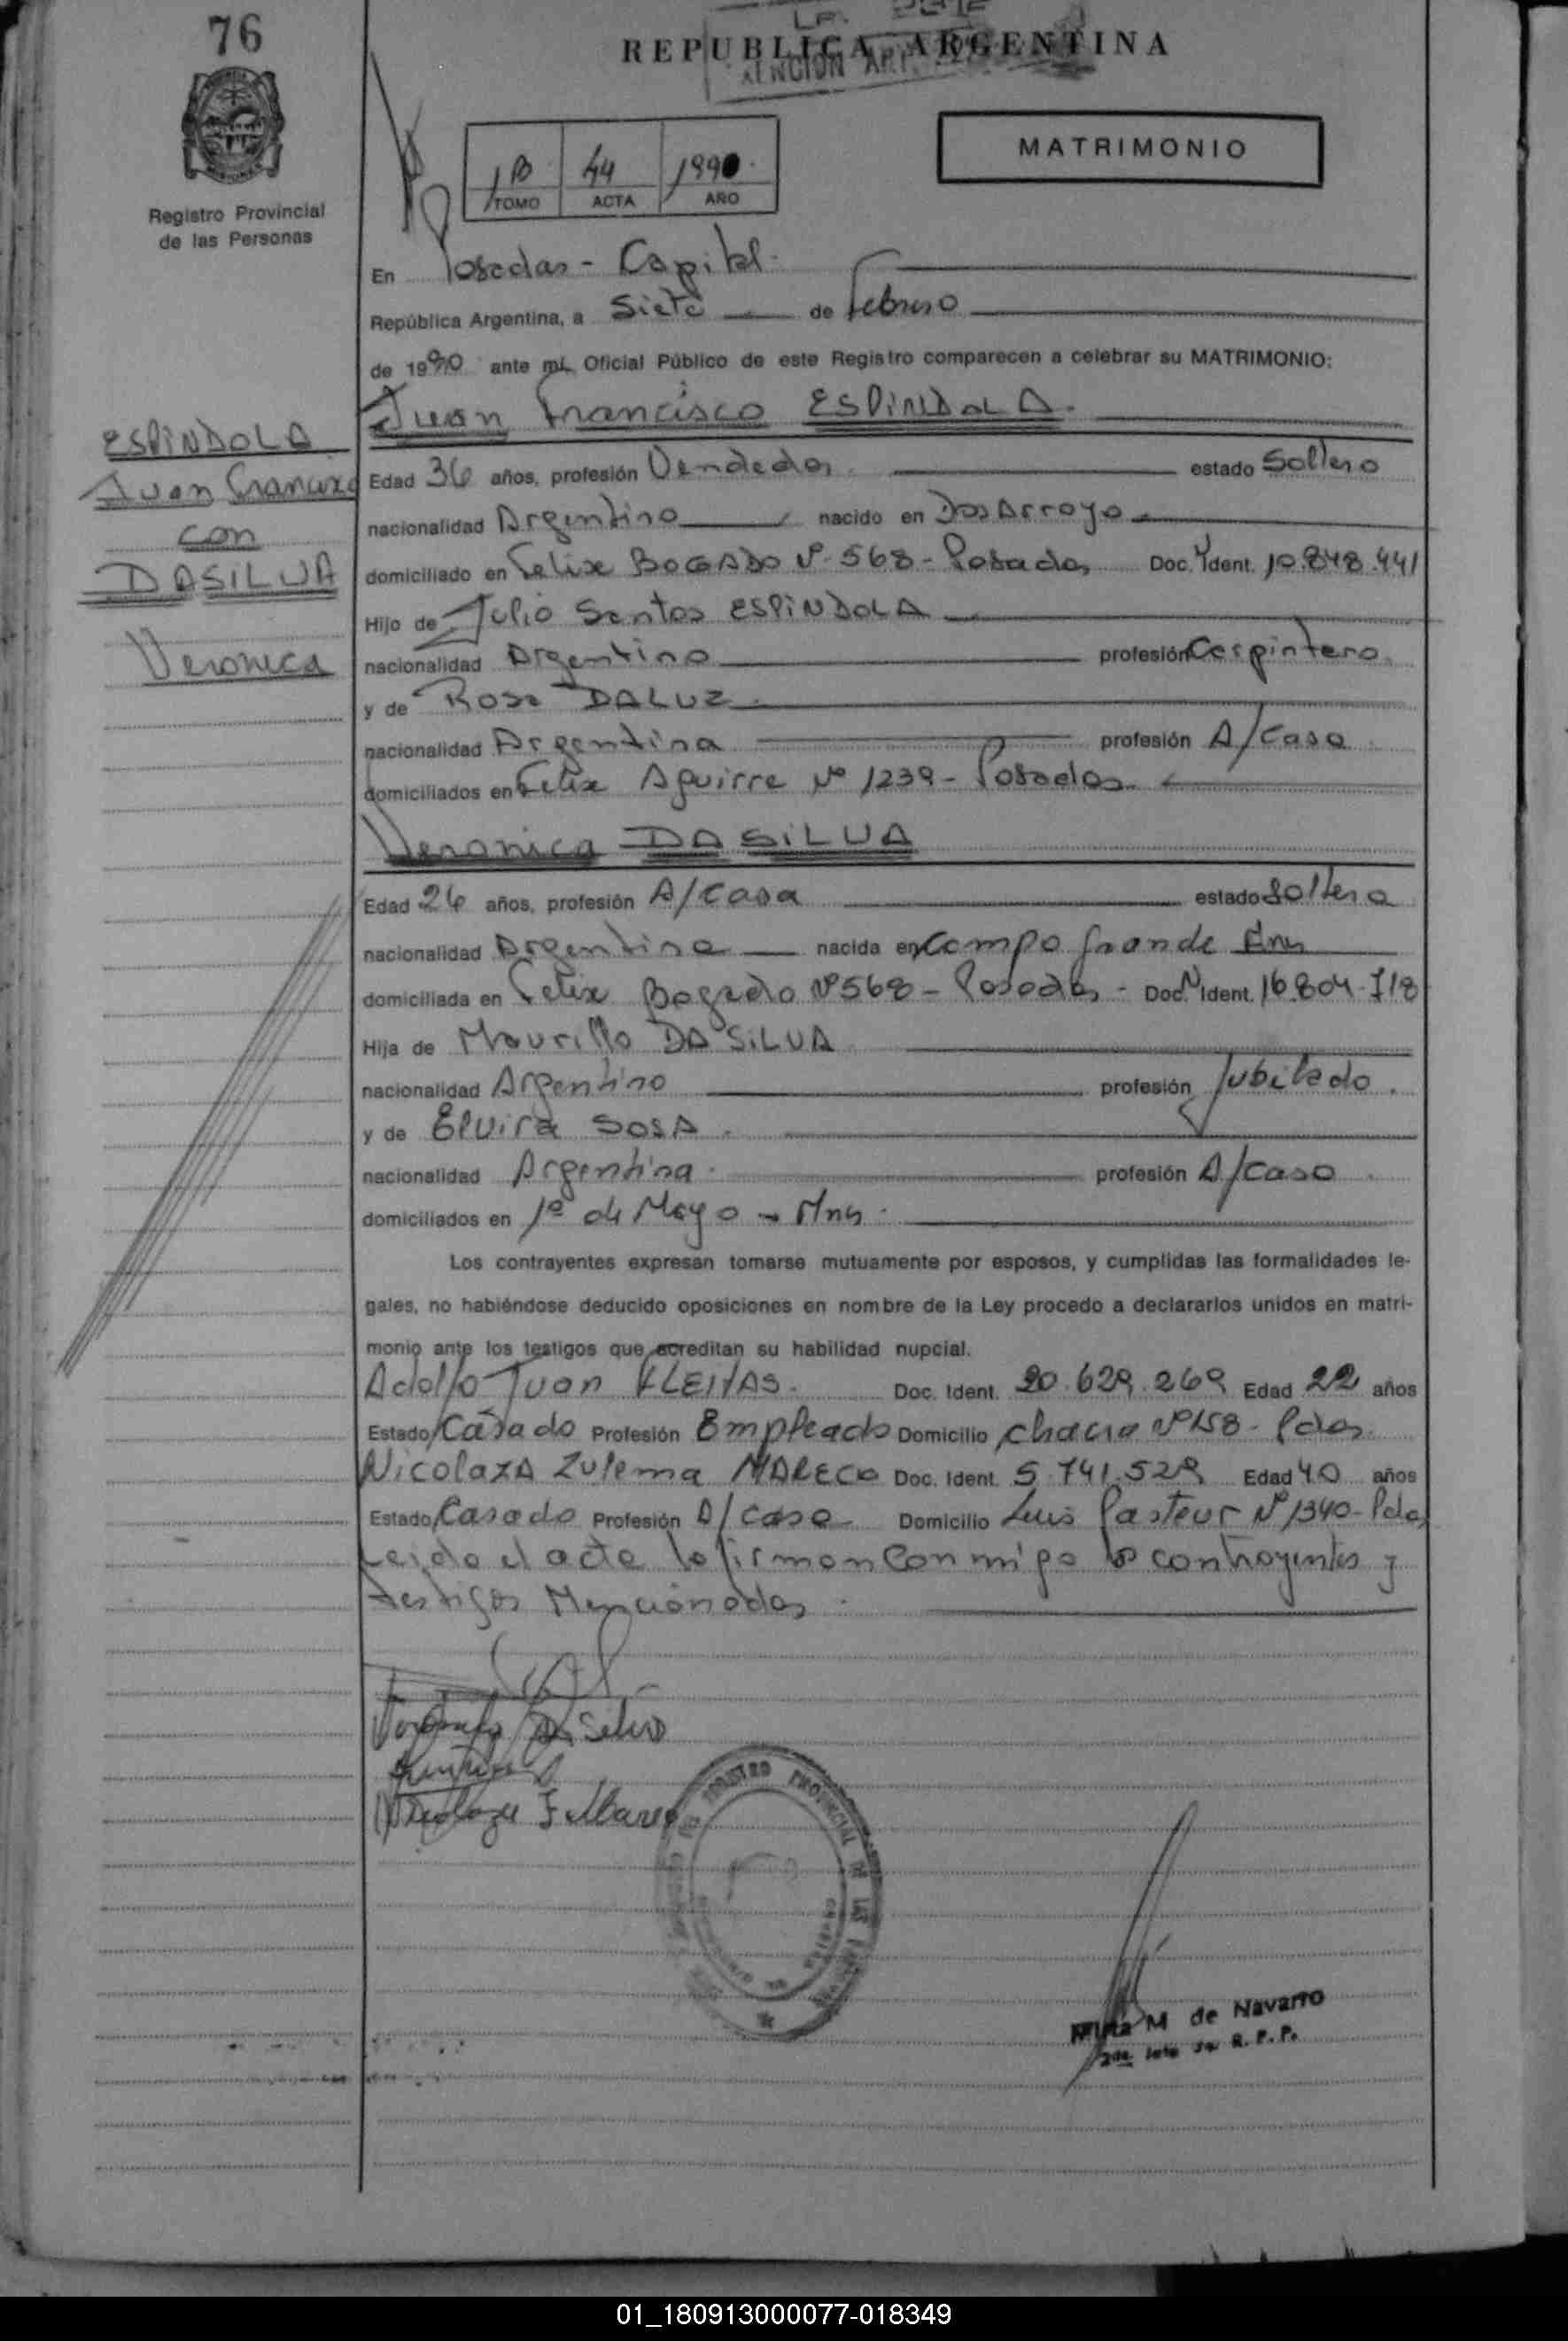 76
REPUBLICA ARGENTINA
MATRIMONIO
1B 44 1990
TOMO ACTA AÑO
Registro Provincial
de las Personas
En Posadas - Capital.
República Argentina, a Siete de Febrero
de 1990 ante mí, Oficial Público de este Registro comparecen a celebrar su MATRIMONIO:
Juan Francisco ESPINDOLA.
ESPINDOLA
Juan Francisco
con
DASILVA
Veronica
Edad 36 años, profesión Vendedor estado Soltero
nacionalidad Argentino nacido en Dos Arroyo
domiciliado en Felix BOGADO Nº 568 - Posadas Doc. Ident. 10.848.441
Hijo de Julio Santos ESPINDOLA
nacionalidad Argentino profesión Carpintero
y de Rosa DALUZ
nacionalidad Argentina profesión A/Casa
domiciliados en Felix Aguirre Nº 1239 - Posadas
Veronica DA SILVA
Edad 26 años, profesión A/Casa estado Soltera
nacionalidad Argentina nacida en Campo Grande
domiciliada en Felix Bogado Nº 568 - Posadas - Doc. Ident. 16.804.718
Hija de Maurillo DA SILVA
nacionalidad Argentino profesión Jubilado.
y de Elvira SOSA.
nacionalidad Argentina. profesión A/Casa
domiciliados en 1º de Mayo - Mns.
Los contrayentes expresan tomarse mutuamente por esposos, y cumplidas las formalidades le-
gales, no habiéndose deducido oposiciones en nombre de la Ley procedo a declararlos unidos en matri-
monio ante los testigos que acreditan su habilidad nupcial.
Adolfo Juan FLEITAS. Doc. Ident. 20.629.269 Edad 22 años
Estado Casado Profesión Empleado Domicilio Chacra Nº 158 - Pdas.
Nicolaza Zulema MARECO Doc. Ident. 5.741.529 Edad 40 años
Estado Casado Profesión A/Casa Domicilio Luis Pasteur Nº 1340 - Pdas
Leido el acta lo firman Conmigo los contrayentes y
testigos Mencionados.
Da Silva
REGISTRO PROVINCIAL DE LAS
M de Navarro
R. P. P.
01_180913000077-018349